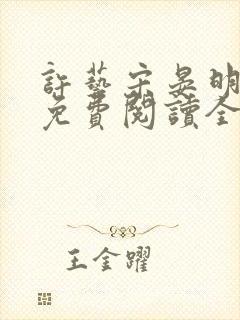 許藝宗晏明
免費閱讀全
王金躍